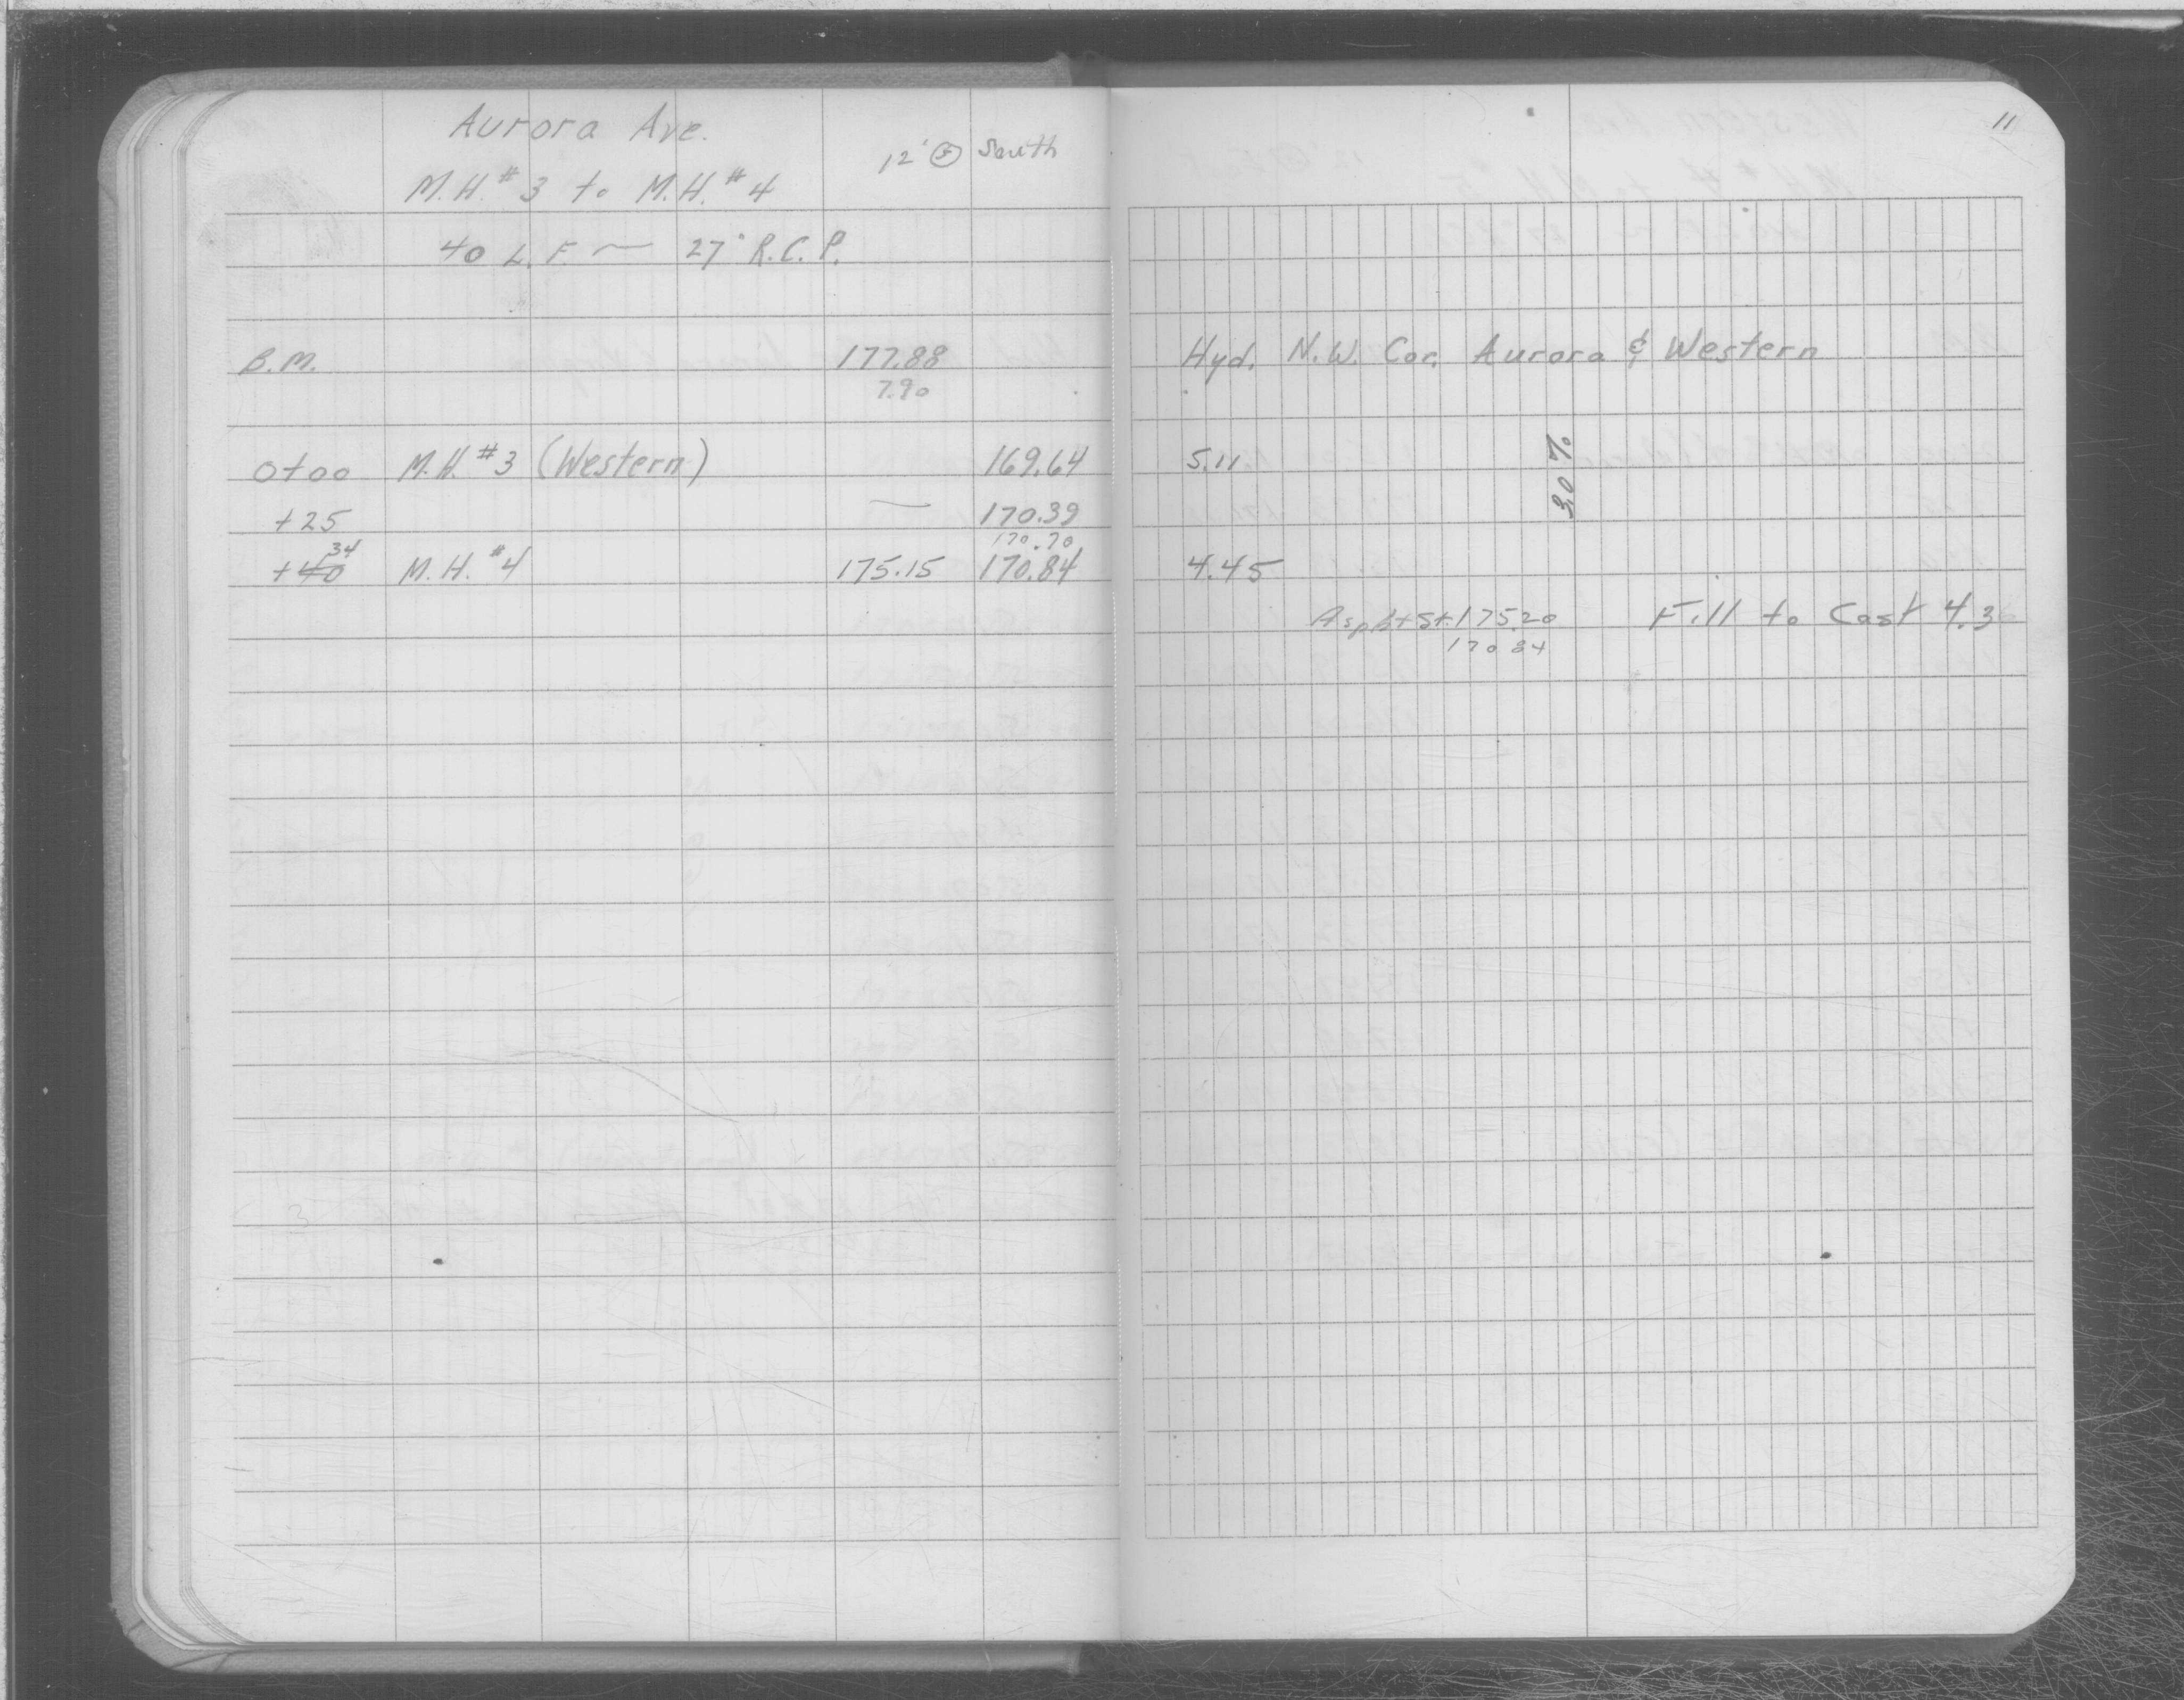 Aurora Ave.
12' Ⓢ South
M.H. #3 to M.H. #4
40 L.F. — 27" R.C.P.
B.M. 177.88
7.90
0+00 M.H. #3 (Western) 169.64
+25 — 170.39
34 170.70
+40 M.H. #4 175.15 170.84
11
Hyd. N.W. Cor. Aurora & Western
5.11
3.0%
4.45
Aspht St. 175.20 Fill to Cast 4.3
170.84